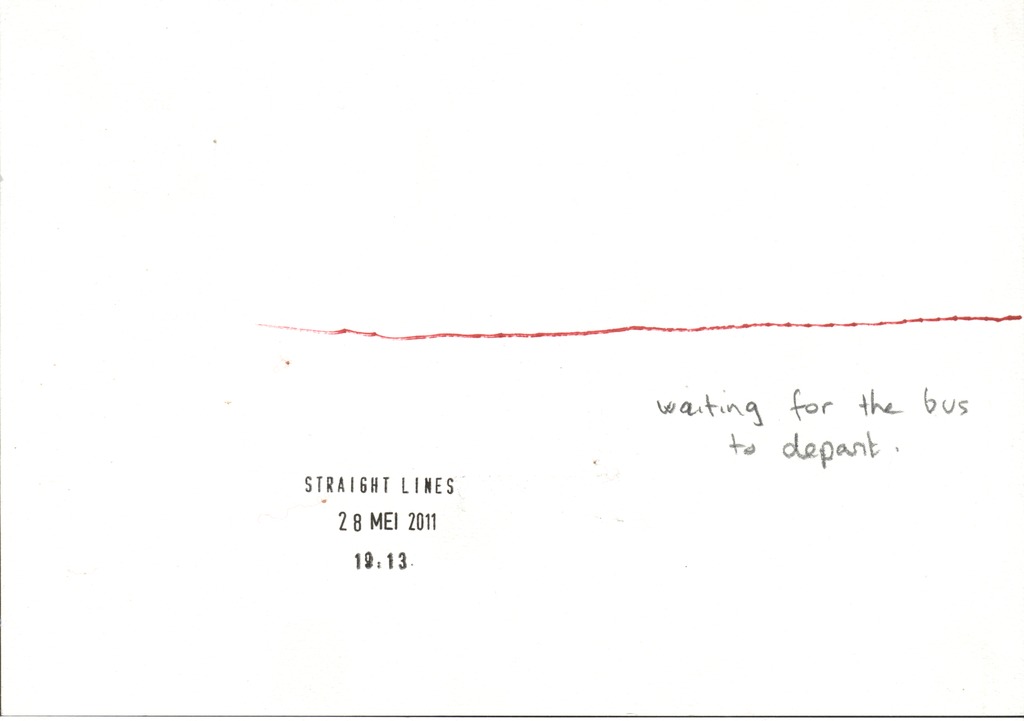 waiting for the bus
to depart.
STRAIGHT LINES
28 MEI 2011
19:13